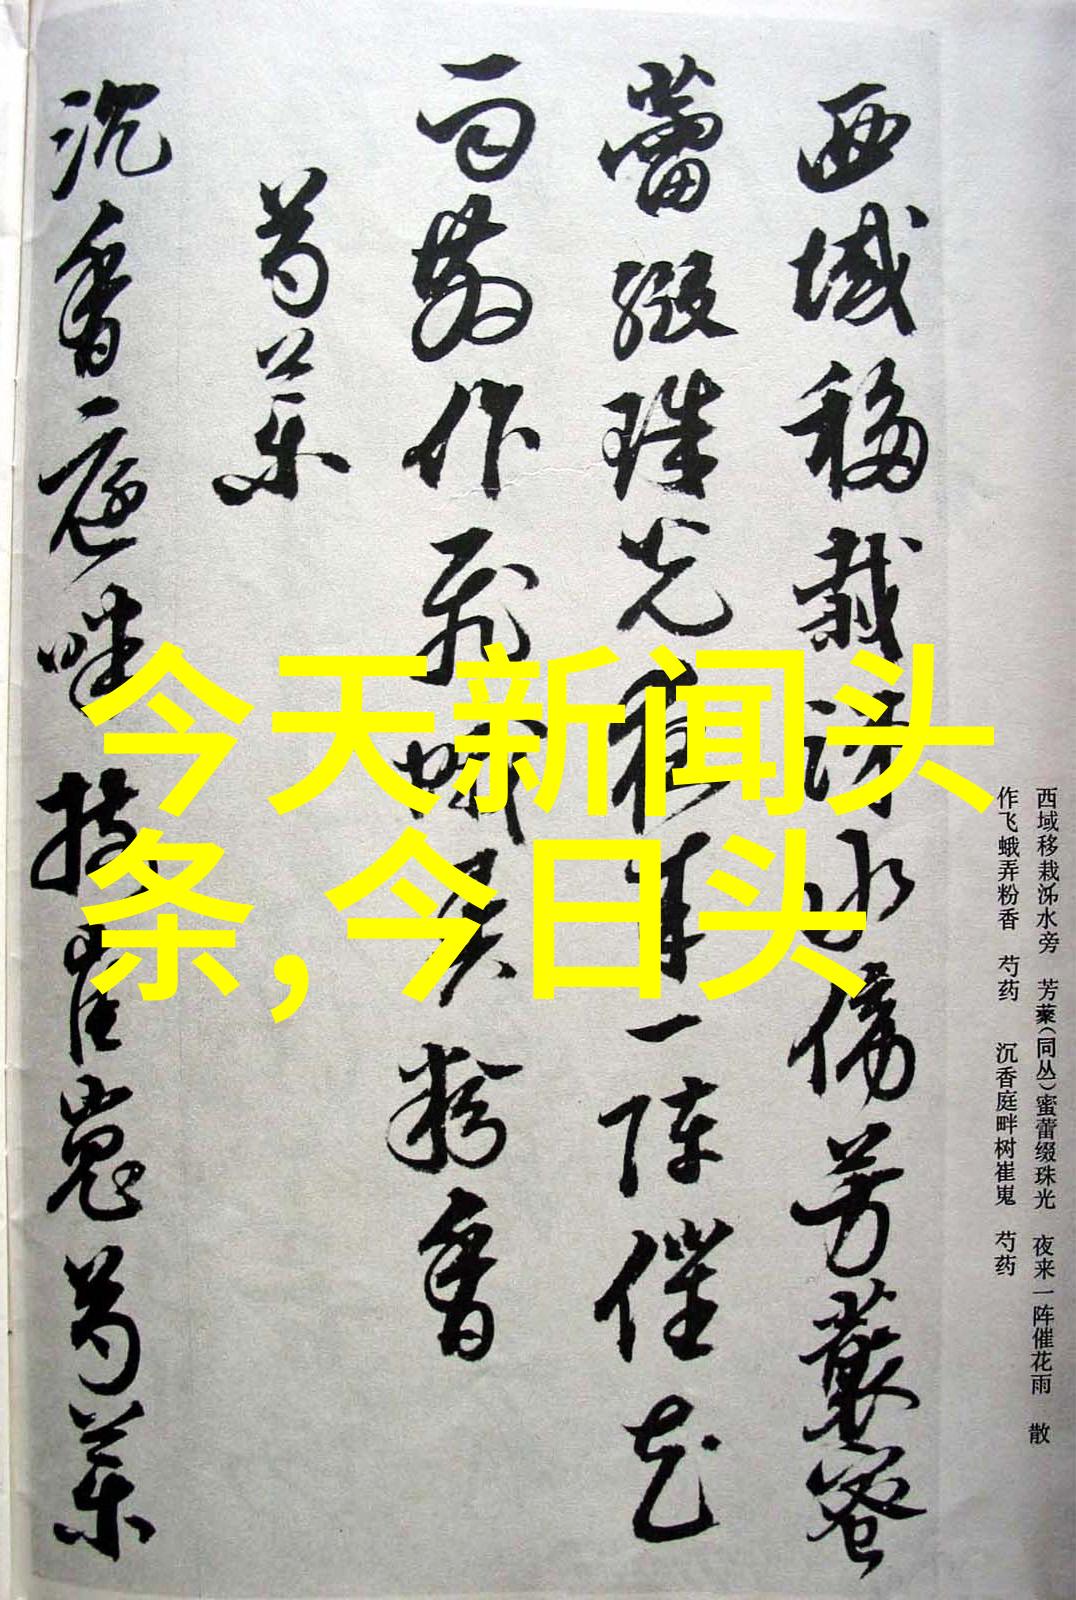 西域移栽泲水旁　芳藂(同丛)蜜蕾缀珠光　夜来一阵催花雨　散
作飞蛾弄粉香　芍药　沉香庭畔树崔嵬　芍药
西域移栽泲水傍芳藂蜜
蕾綴珠光夜来一陣催花
雨散作飛蛾弄粉香
芍藥
沉香庭畔樹崔嵬芍藥
今天新闻头
条, 今日头